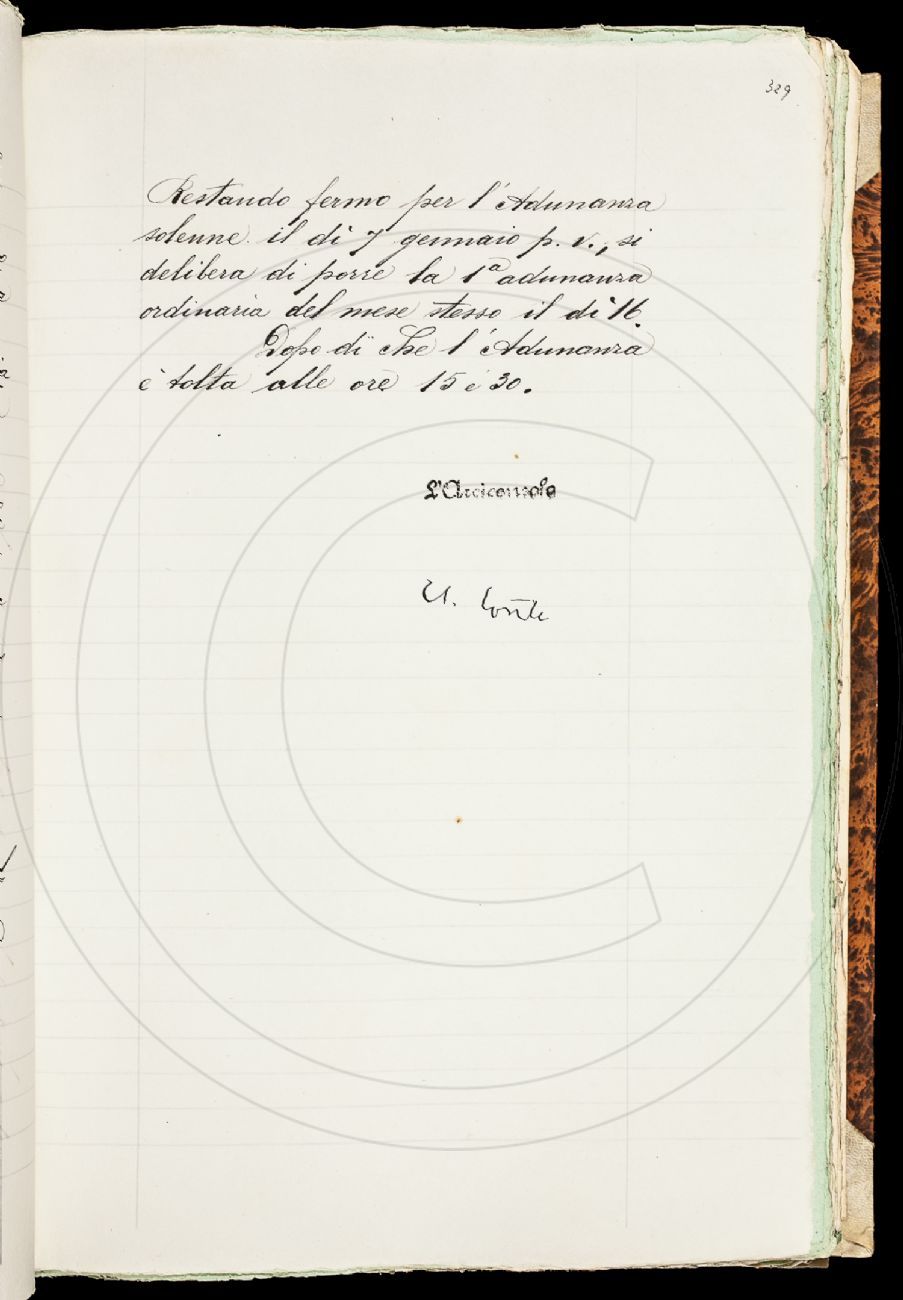 329
Restando fermo per l'Adunanza
solenne il dì 7 gennaio p. v., si
delibera di porre la 1ª adunanza
ordinaria del mese stesso il dì 16.
Dopo di che l'Adunanza
è tolta alle ore 15 e 30.
L'Arciconsolo